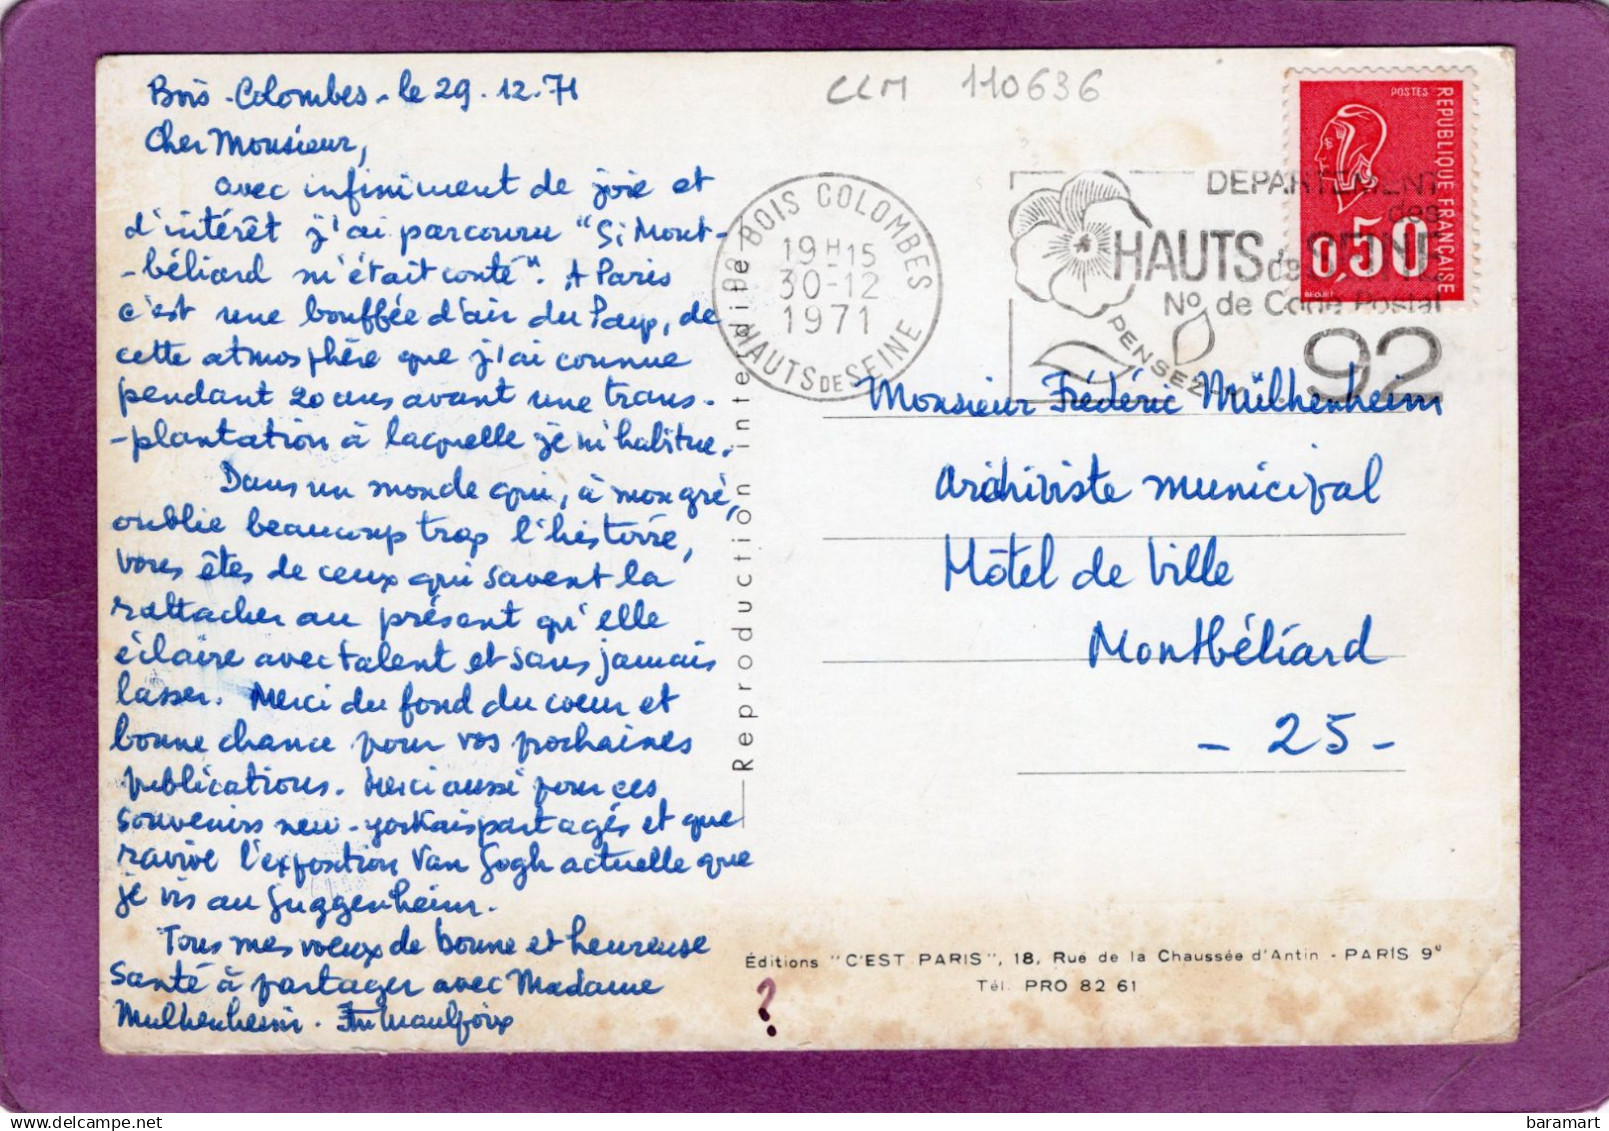 Bois-Colombes-le 29.12.71
Cher Monsieur,
avec infiniment de joie et
d'intérêt j'ai parcouru "Si Mont-
-béliard m'était conté". A Paris
c'est une bouffée d'air du Pays, de
cette atmosphère que j'ai connue
pendant 20 ans avant une trans-
-plantation à laquelle je m'habitue.
Dans un monde qui, à mon gré,
oublie beaucoup trop l'histoire,
vous êtes de ceux qui savent la
rattacher au présent qu'elle
éclaire avec talent et sans jamais
lasser. Merci du fond du coeur et
bonne chance pour vos prochaines
publications. Merci aussi pour ces
souvenirs new-yorkais partagés et que
ravive l'exposition Van Gogh actuelle que
je vis au Guggenheim.
Tous mes voeux de bonne et heureuse
santé à partager avec Madame
Mulhenheim.
CLM 110636
POSTES
REPUBLIQUE FRANÇAISE
0,50
BEQUET
92 BOIS COLOMBES
19H15
30-12
1971
HAUTS DE SEINE
DEPARTEMENT
des
HAUTS de SEINE
No de Code Postal
92
PENSEZ
Monsieur Frédéric Mülhenheim
Archiviste municipal
Hôtel de Ville
Montbéliard
- 25 -
Reproduction interdite
Éditions "C'EST PARIS", 18, Rue de la Chaussée d'Antin - PARIS 9e
Tél. PRO 82 61
?
baramart